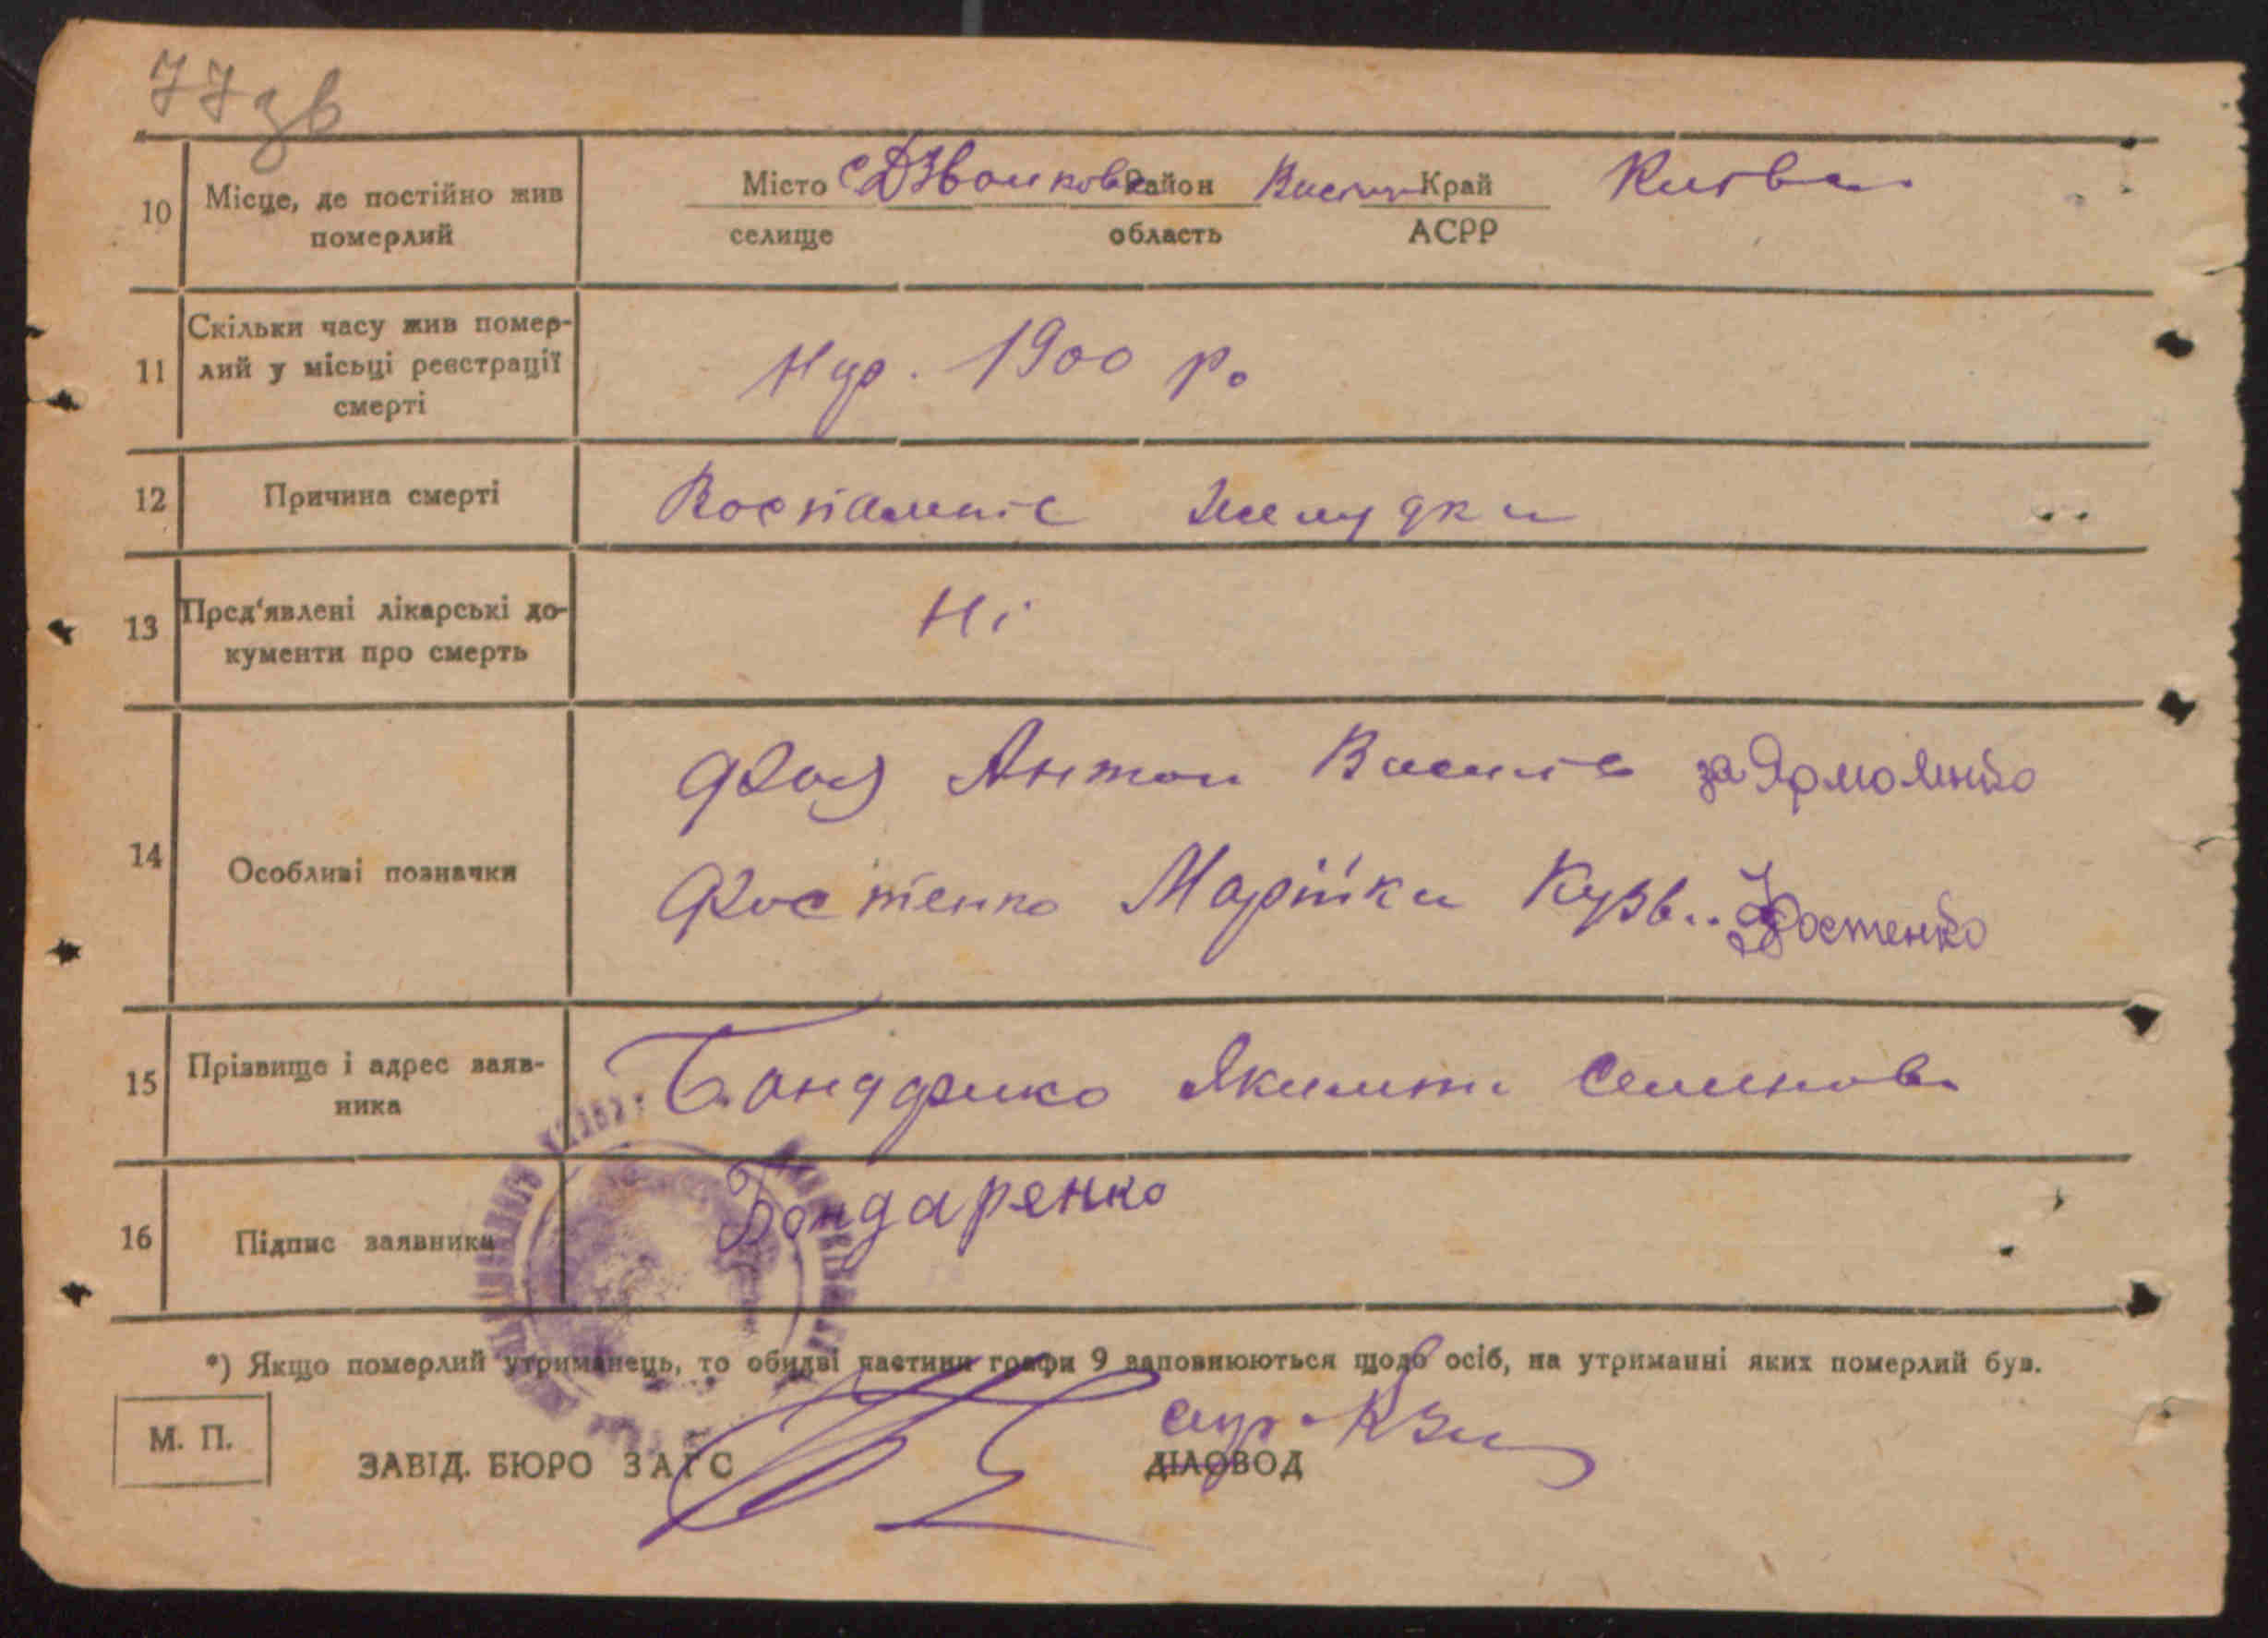 77 зв
10 Місце, де постійно жив
померлий
Місто с Дзвонкова Район Васил Край Київськ
селище область АСРР
11 Скільки часу жив помер-
лий у місьці реєстрації
смерті
Нар. 1900 р.
12 Причина смерті Воспаление желудка
13 Пред'явлені лікарські до-
кументи про смерть
Ні
14 Особливі позначки
Антон Василів за Ярмоленко
Костенко Марійка Кузьм. Костенко
15 Прізвище і адрес заяв-
ника
Бондаренко Семенов
16 Підпис заявника Бондаренко
*) Якщо померлий утриманець, то обидві частини графи 9 заповнюються щодо осіб, на утриманні яких померлий був.
М. П.
ЗАВІД. БЮРО ЗАГС ДІЛОВОД